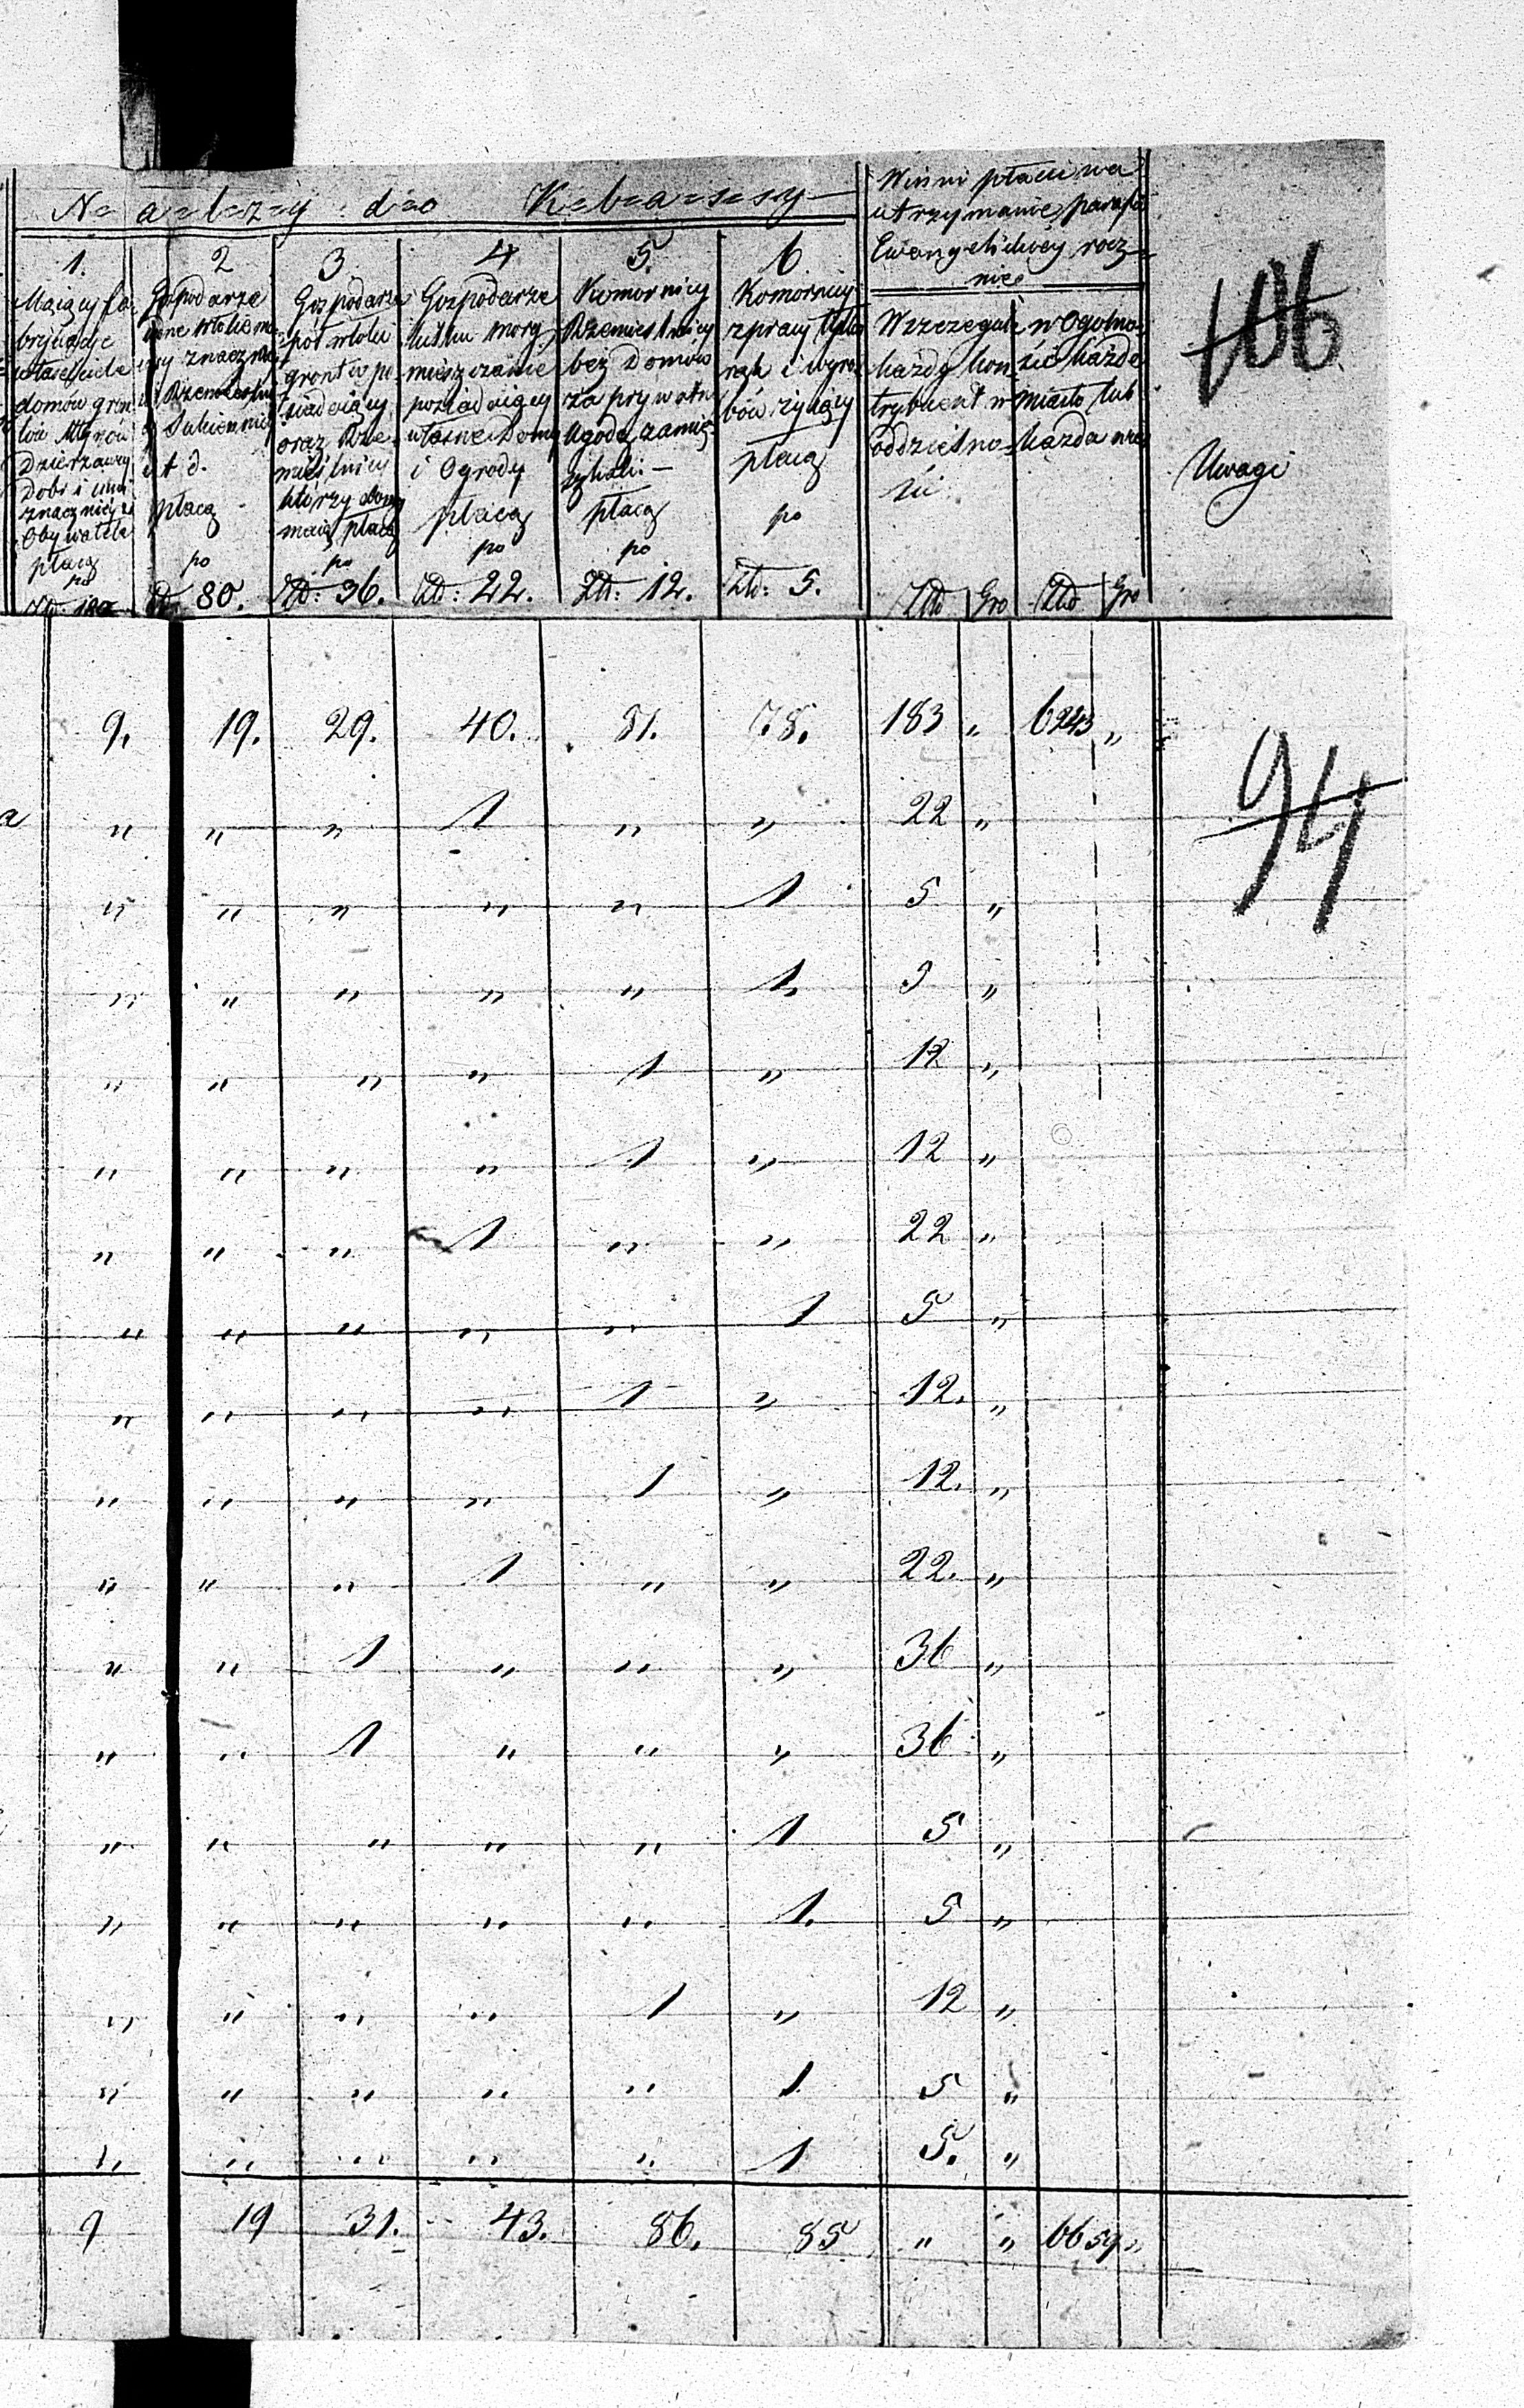 Należy do Klassy
Winni płacić na
utrzymanie parafii
Ewangelickiey rocz-
nie
1. 2 3. 4 5. 6
Maiący fa-
bryki
właściciele
domów
Młynów
Dzierzawcy
Dobr i inni
znaczniejsi
Obywatele
płacą
po
Złt 180
Gospodarze
znaczni
Rzemieslnicy
Sukiennicy
i t d.
płacą
po
Złt: 80.
Gospodarze
poł włoki
gruntu po-
siadaiący
oraz Rze-
mieslnicy
ktorzy domy
maią płacą
po
Złt: 36.
Gospodarze
kilku morg
mieszczanie
posiadaiący
własne Domy
i Ogrody
płacą
po
Złt: 22.
Komornicy
Rzemieslnicy
bez Domów
za prywatną
ugodą zamie-
szkali
płacą
po
Złt: 12.
Komornicy
z pracy tylko
rąk i wyro-
bów żyiący
płacą
po
Złt: 5.
W szczegule
każdy kon-
trybuent w
oddzielno-
ści
Złt Gro
w Ogolno-
ści każde
miasto lub
każda wieś
Złt Gro
106
Uwagi
9. 19. 29. 40. 81. 78. 183 „ 6243 „
94
„ „ „ 1 „ „ 22 „
„ „ „ „ „ 1 5 „
„ „ „ „ „ 1. 5 „
„ „ „ „ 1 „ 12 „
„ „ „ „ 1 „ 12 „
„ „ „ 1 „ „ 22 „
„ „ „ „ „ 1 5 „
„ „ „ „ 1 „ 12. „
„ „ „ „ 1 „ 12. „
„ „ „ 1 „ „ 22. „
„ „ 1 „ „ „ 36 „
„ „ 1 „ „ „ 36 „
„ „ „ „ „ 1 5 „
„ „ „ „ „ 1. 5 „
„ „ „ „ 1 „ 12 „
„ „ „ „ „ 1 5 „
„ „ „ „ „ 1 5. „
9 19 31. 43. 86. 85 „ „ 6659 „